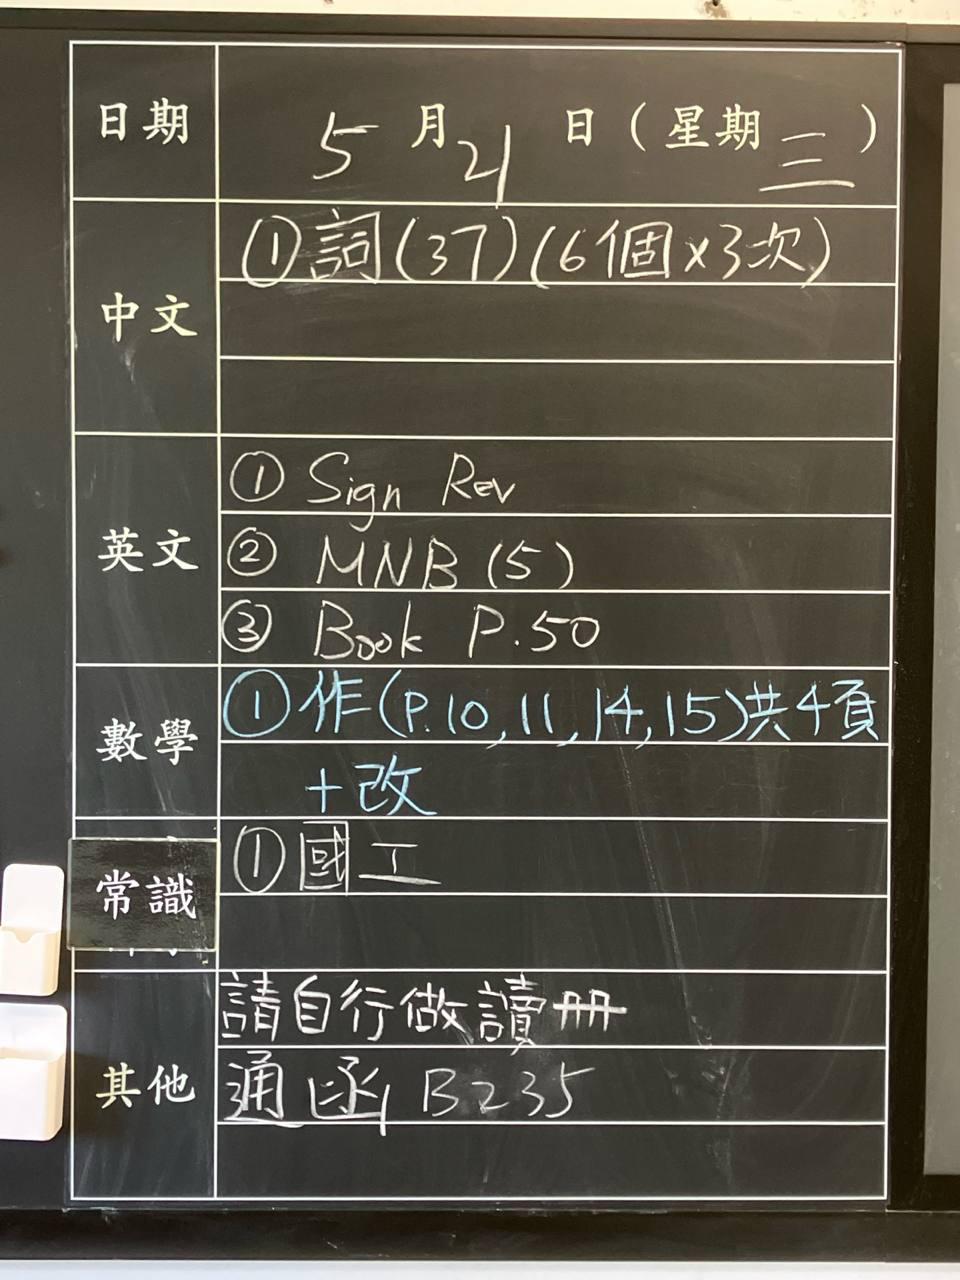 日期 5月21日(星期三)
中文 ①詞(37)(6個×3次)
英文 ① Sign Rev
② MNB (5)
③ Book P.50
數學 ①作(P.10,11,14,15)共4頁
+改
常識 ①國工
其他 請自行做讀冊
通函 B235